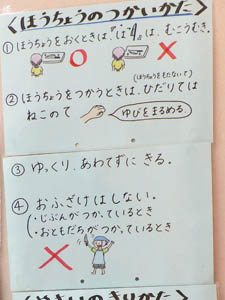 <ほうちょうのつかいかた>
①ほうちょうをおくときは"は"は、むこうむき。
(ほうちょうをもたないて)
②ほうちょうをつかうときは、ひだりては
ねこのて ゆびをまるめる。
③ゆっくり、あわてずに きる。
④おふざけはしない。
(・じぶんがつかっているとき
・おともだちがつかっているとき